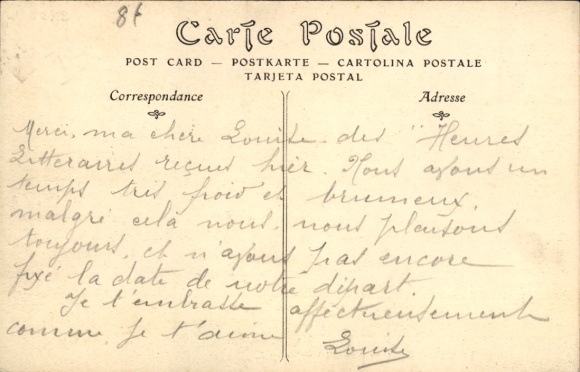 8f
Carte Postale
POST CARD — POSTKARTE — CARTOLINA POSTALE
TARJETA POSTAL
Correspondance
Adresse
Merci, ma chère Louise des "Heures
Litteraires reçues hier. Nous avons un
temps très froid et brumeux,
malgré cela nous, nous plaisons
toujours, et n'avons pas encore
fixé la date de notre départ.
Je t'embrasse affectueusement
comme je t'aime
Louise